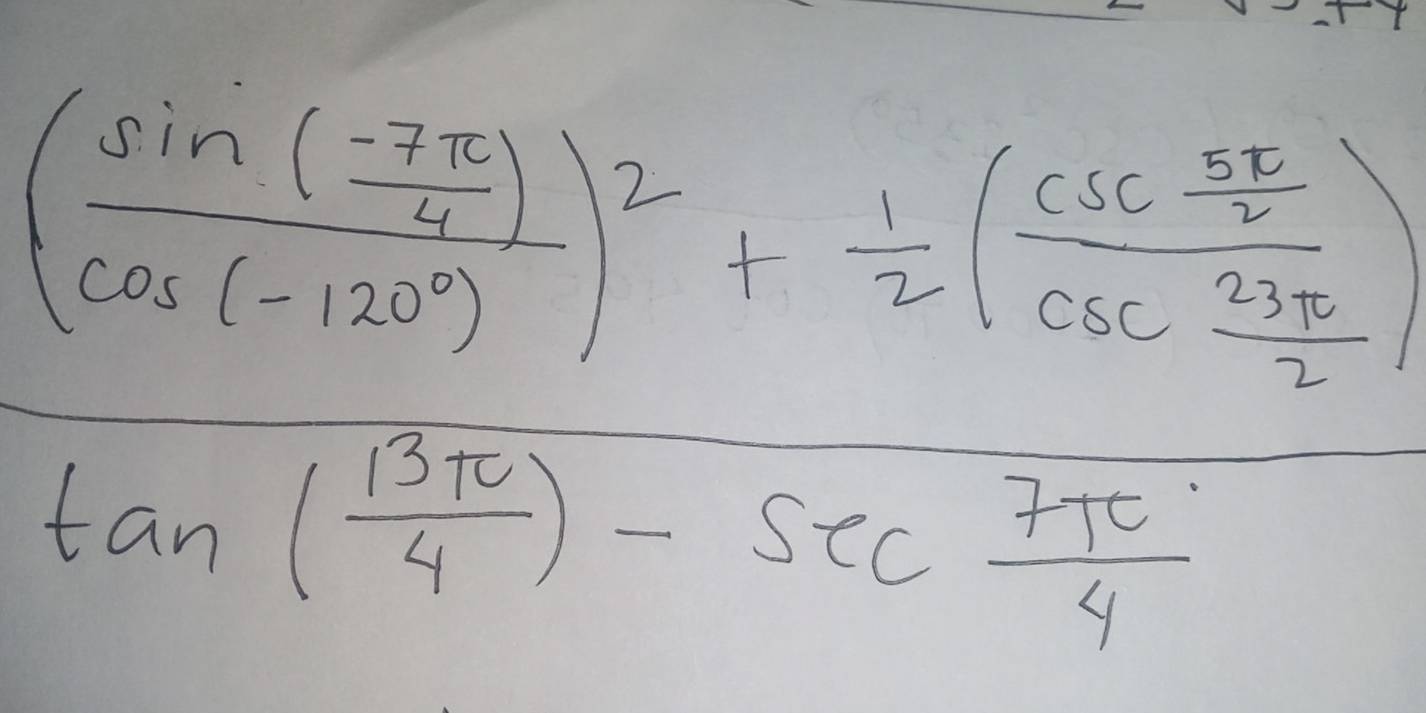 (sin (-7π/4) / cos (-120°))² + 1/2 (csc 5π/2 / csc 23π/2)
tan (13π/4) - sec 7π/4